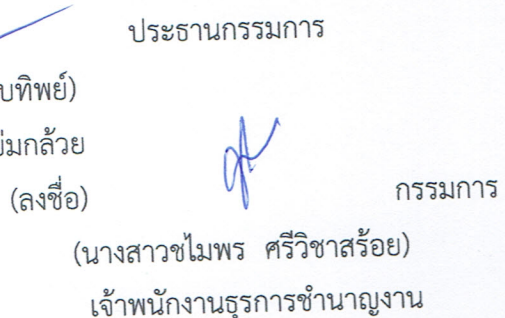 ประธานกรรมการ
บทิพย์)
่มกล้วย
(ลงชื่อ) กรรมการ
(นางสาวชไมพร ศรีวิชาสร้อย)
เจ้าพนักงานธุรการชำนาญงาน